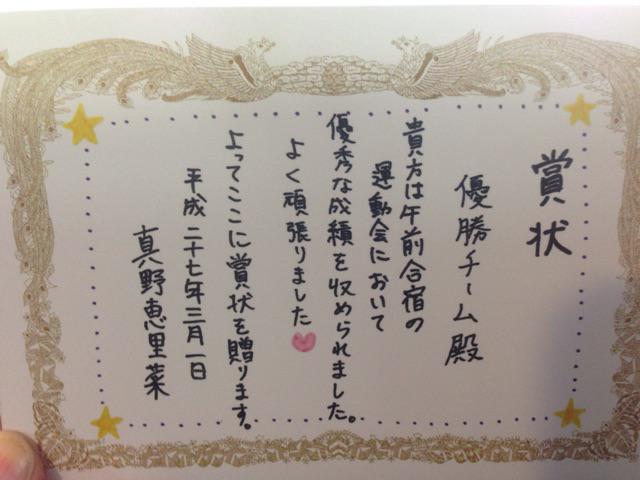 賞状
優勝チーム殿
貴方は午前合宿の
運動会において
優秀な成績を収められました。
よく頑張りました
よってここに賞状を贈ります。
平成二十七年三月一日
真野恵里菜